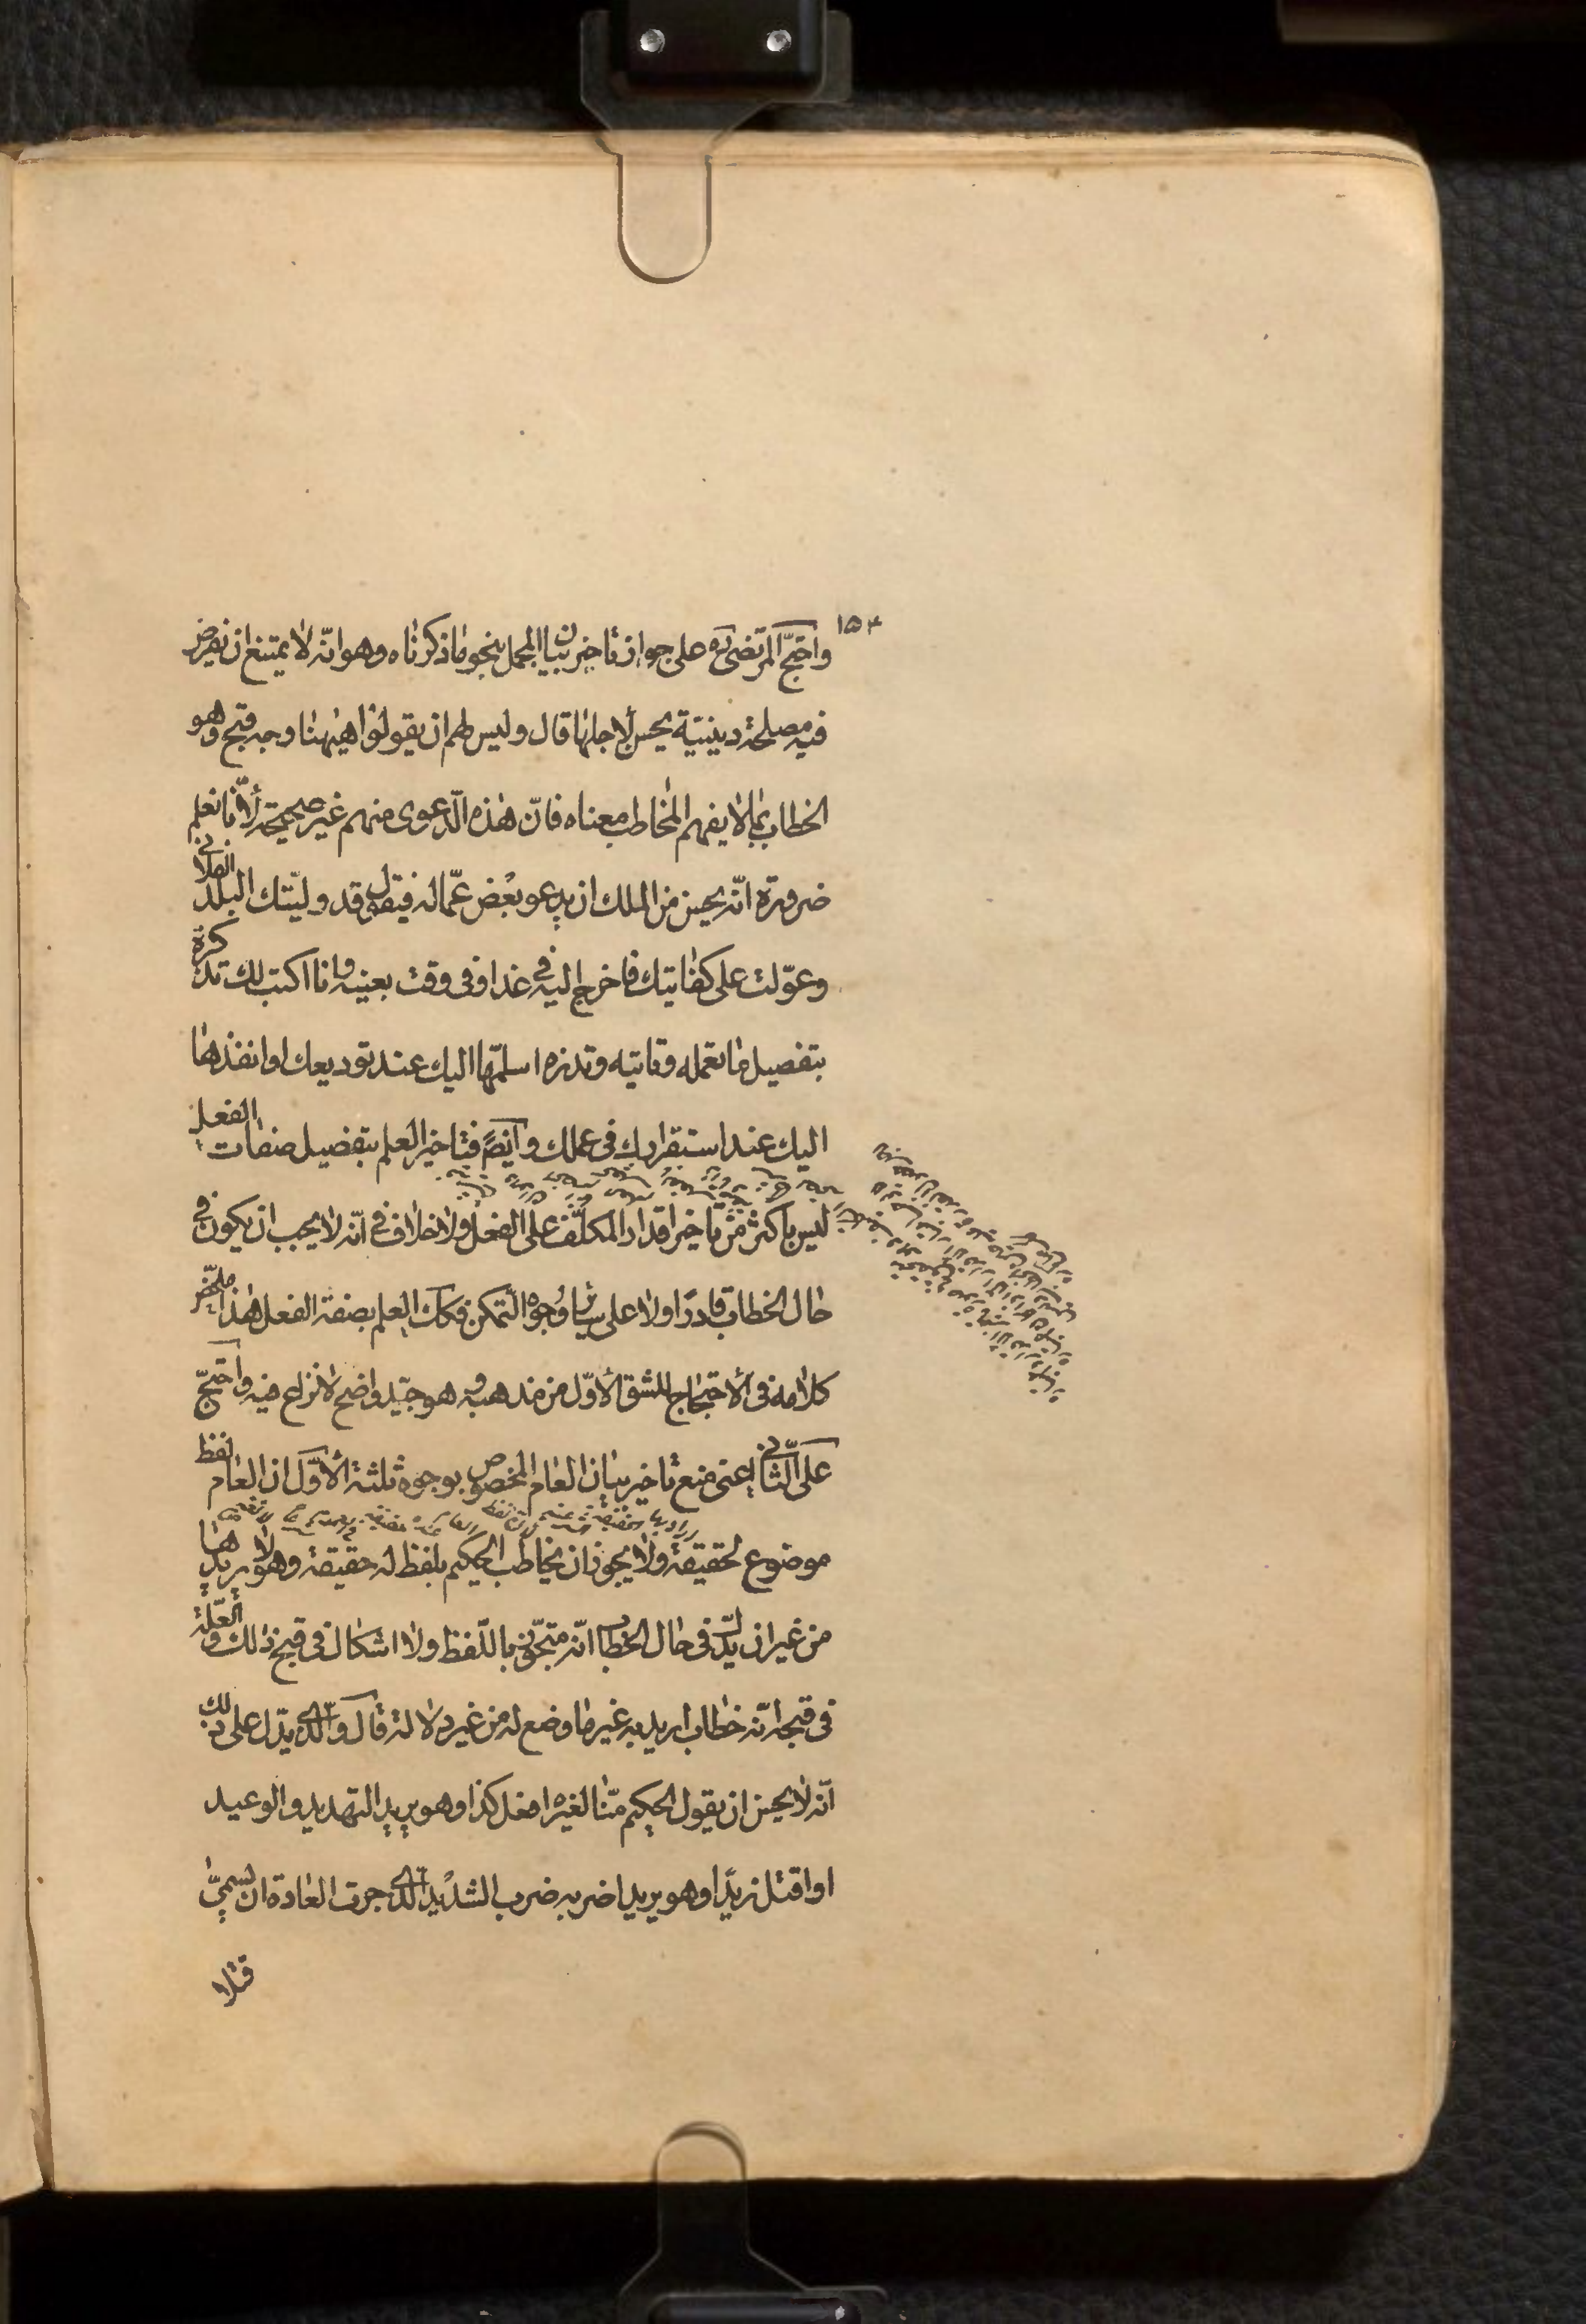 ١٥٤
واحتجّ المرتضى ره على جواز تاخير بيان المجمل بنحو ما ذكرناه وهو انّه لا يمتنع ان نفرض
فيه مصلحة دينيّة يحسن لاجلها قال وليس لهم ان يقولوا هيٰهنا وجه قبح وهو
الخطاب بما لا يفهم المخاطب معناه فانّ هذه الدّعوى منهم غير صحيحة لأنّا نعلم
ضرورة انّه يحسن من الملك ان يدعو بعض عمّاله فيقول قد ولّيتك البلد الفلاني
وعوّلت على كفايتك فاخرج اليه في غد او في وقت بعينه وانا اكتب لك تذكرة
بتفصيل ما تعمله وتاتيه وتذره اسلّمها اليك عند توديعك او انفذها
اليك عند استقرارك في عملك وايضً فتاخير العلم بتفصيل صفات الفعل
ليس باكثر من تاخير اقدار المكلّف على الفعل ولا خلاف في انّه لا يجب ان يكون في
حال الخطاب قادرًا ولا على سائر وجوه التّمكن فكك العلم بصفة الفعل هذا ملخّص
كلامه في الاحتجاج للشق الاوّل من مذهبه وهو جيّد واضح لا نزاع فيه واحتجّ
على الثّاني اعني منع تاخير بيان العام المخصوص بوجوه ثلثة الأوّل ان العام لفظ
موضوع لحقيقة ولا يجوز ان يخاطب الحكيم بلفظ له حقيقة وهو لا يريدها
من غير ان يدلّ في حال الخطاب انّه متجوّز باللّفظ ولا اشكال في قبح ذلك والعلّة
في قبحه انّه خطاب اريد به غير ما وضع له من غير دلالة قال والّذي يدّل على ذلك
انّه لا يحسن ان يقول الحكيم منّا لغيره افعل كذا وهو يريد التهديد والوعيد
او اقتل زيدًا وهو يريد اضربه ضرب الشديد الّذي جرت العادة ان يسمّى
قتلا